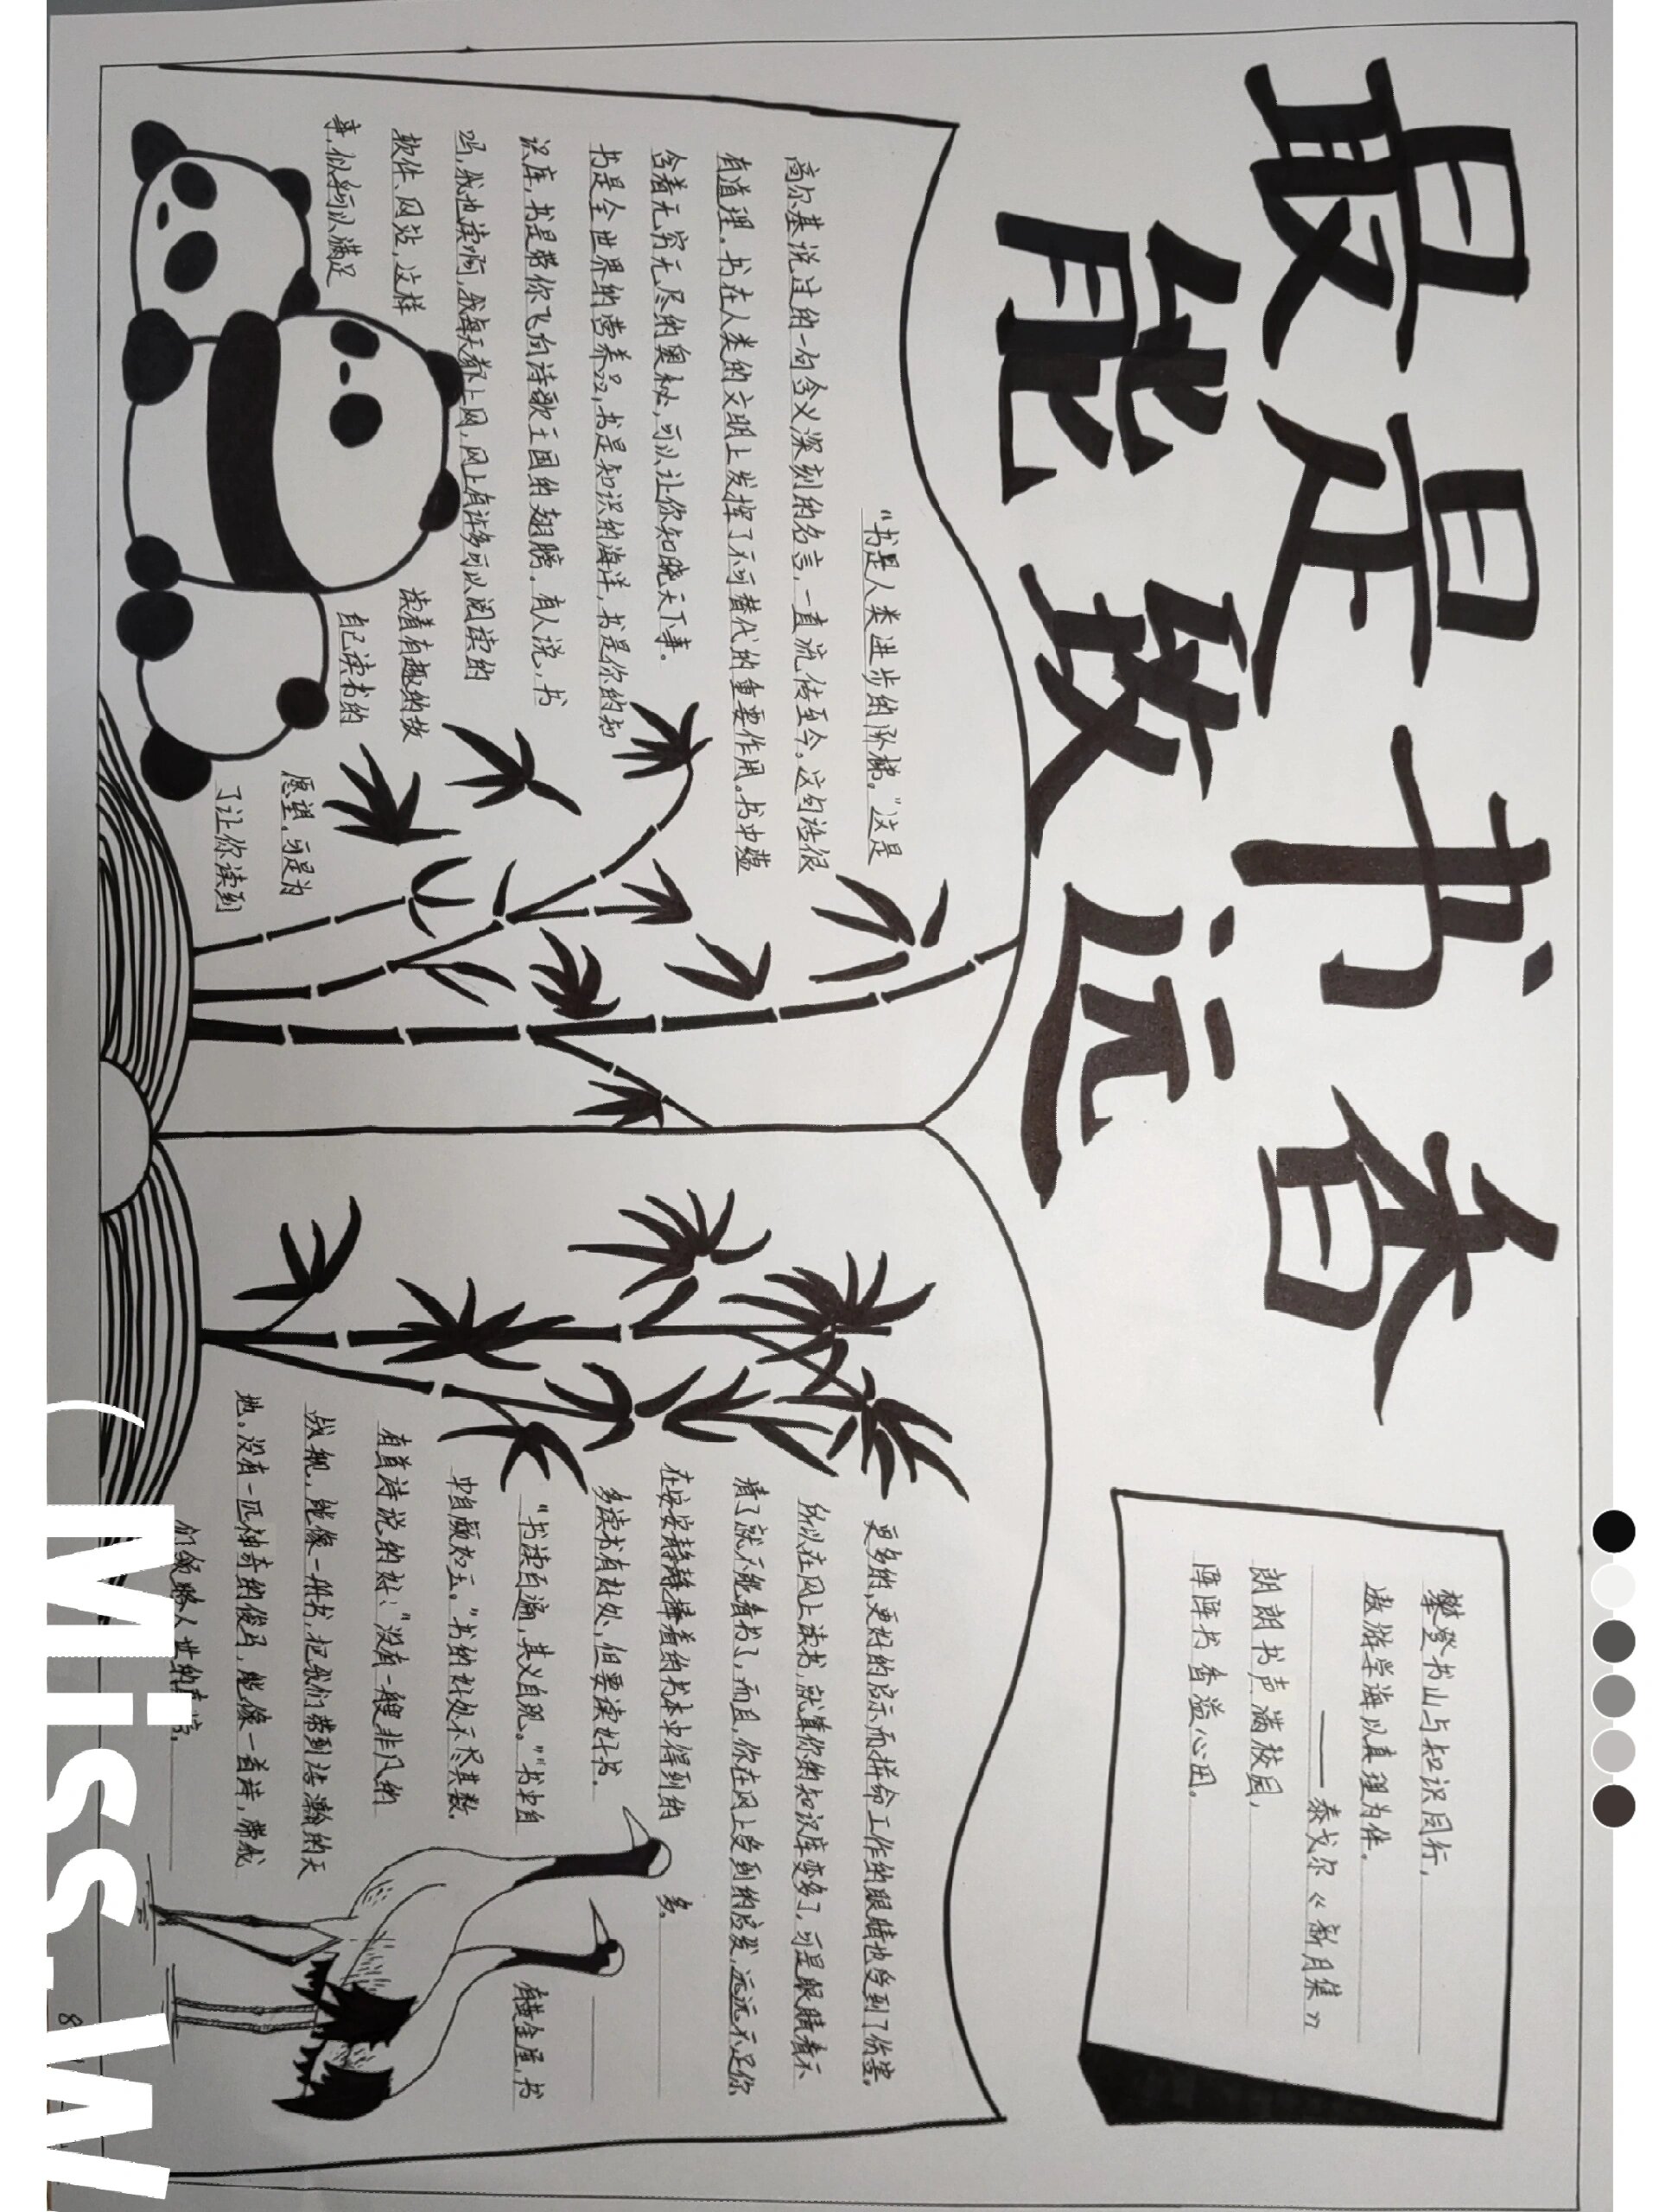 最是书香
能致远
攀登书山与知识同行，
遨游学海以真理为伴。
——泰戈尔《新月集》
朗朗书声满校园，
阵阵书香溢心田。
“书是人类进步的阶梯。”这是
高尔基说过的一句含义深刻的名言，一直流传至今。这句话很
有道理。书在人类的文明上发挥了不可替代的重要作用。书中蕴
含着无穷无尽的奥秘，可以让你知晓天下事。
书是全世界的营养品，书是知识的海洋，书是你的知
识库，书是带你飞向诗歌王国的翅膀。有人说，书
吗，我也读啊，我每天都上网，网上有许多可以阅读的
软件、网站，这样 读着有趣的故
事，似乎可以满足 自己读书的
愿望，可是为
了让你读到
更多的，更好的启示而拼命工作的眼睛也受到了伤害。
所以在网上读书，就算你的知识库变多了，可是眼睛看不
清了就不能看书了，而且，你在网上受到的启发，远远不足你
在安安静静捧着的书本中得到的 多。
多读书有好处，但要读好书。
“书读百遍，其义自现。”“书中自 有黄金屋，书
中自颜如玉。”书的好处不尽其数。
有首诗说的好：“没有一艘非凡的
战舰，能像一册书，把我们带到浩瀚的天
地。没有一匹神奇的俊马，能像一首诗，带我
们领略人世的真谛。
(Miss_W
8